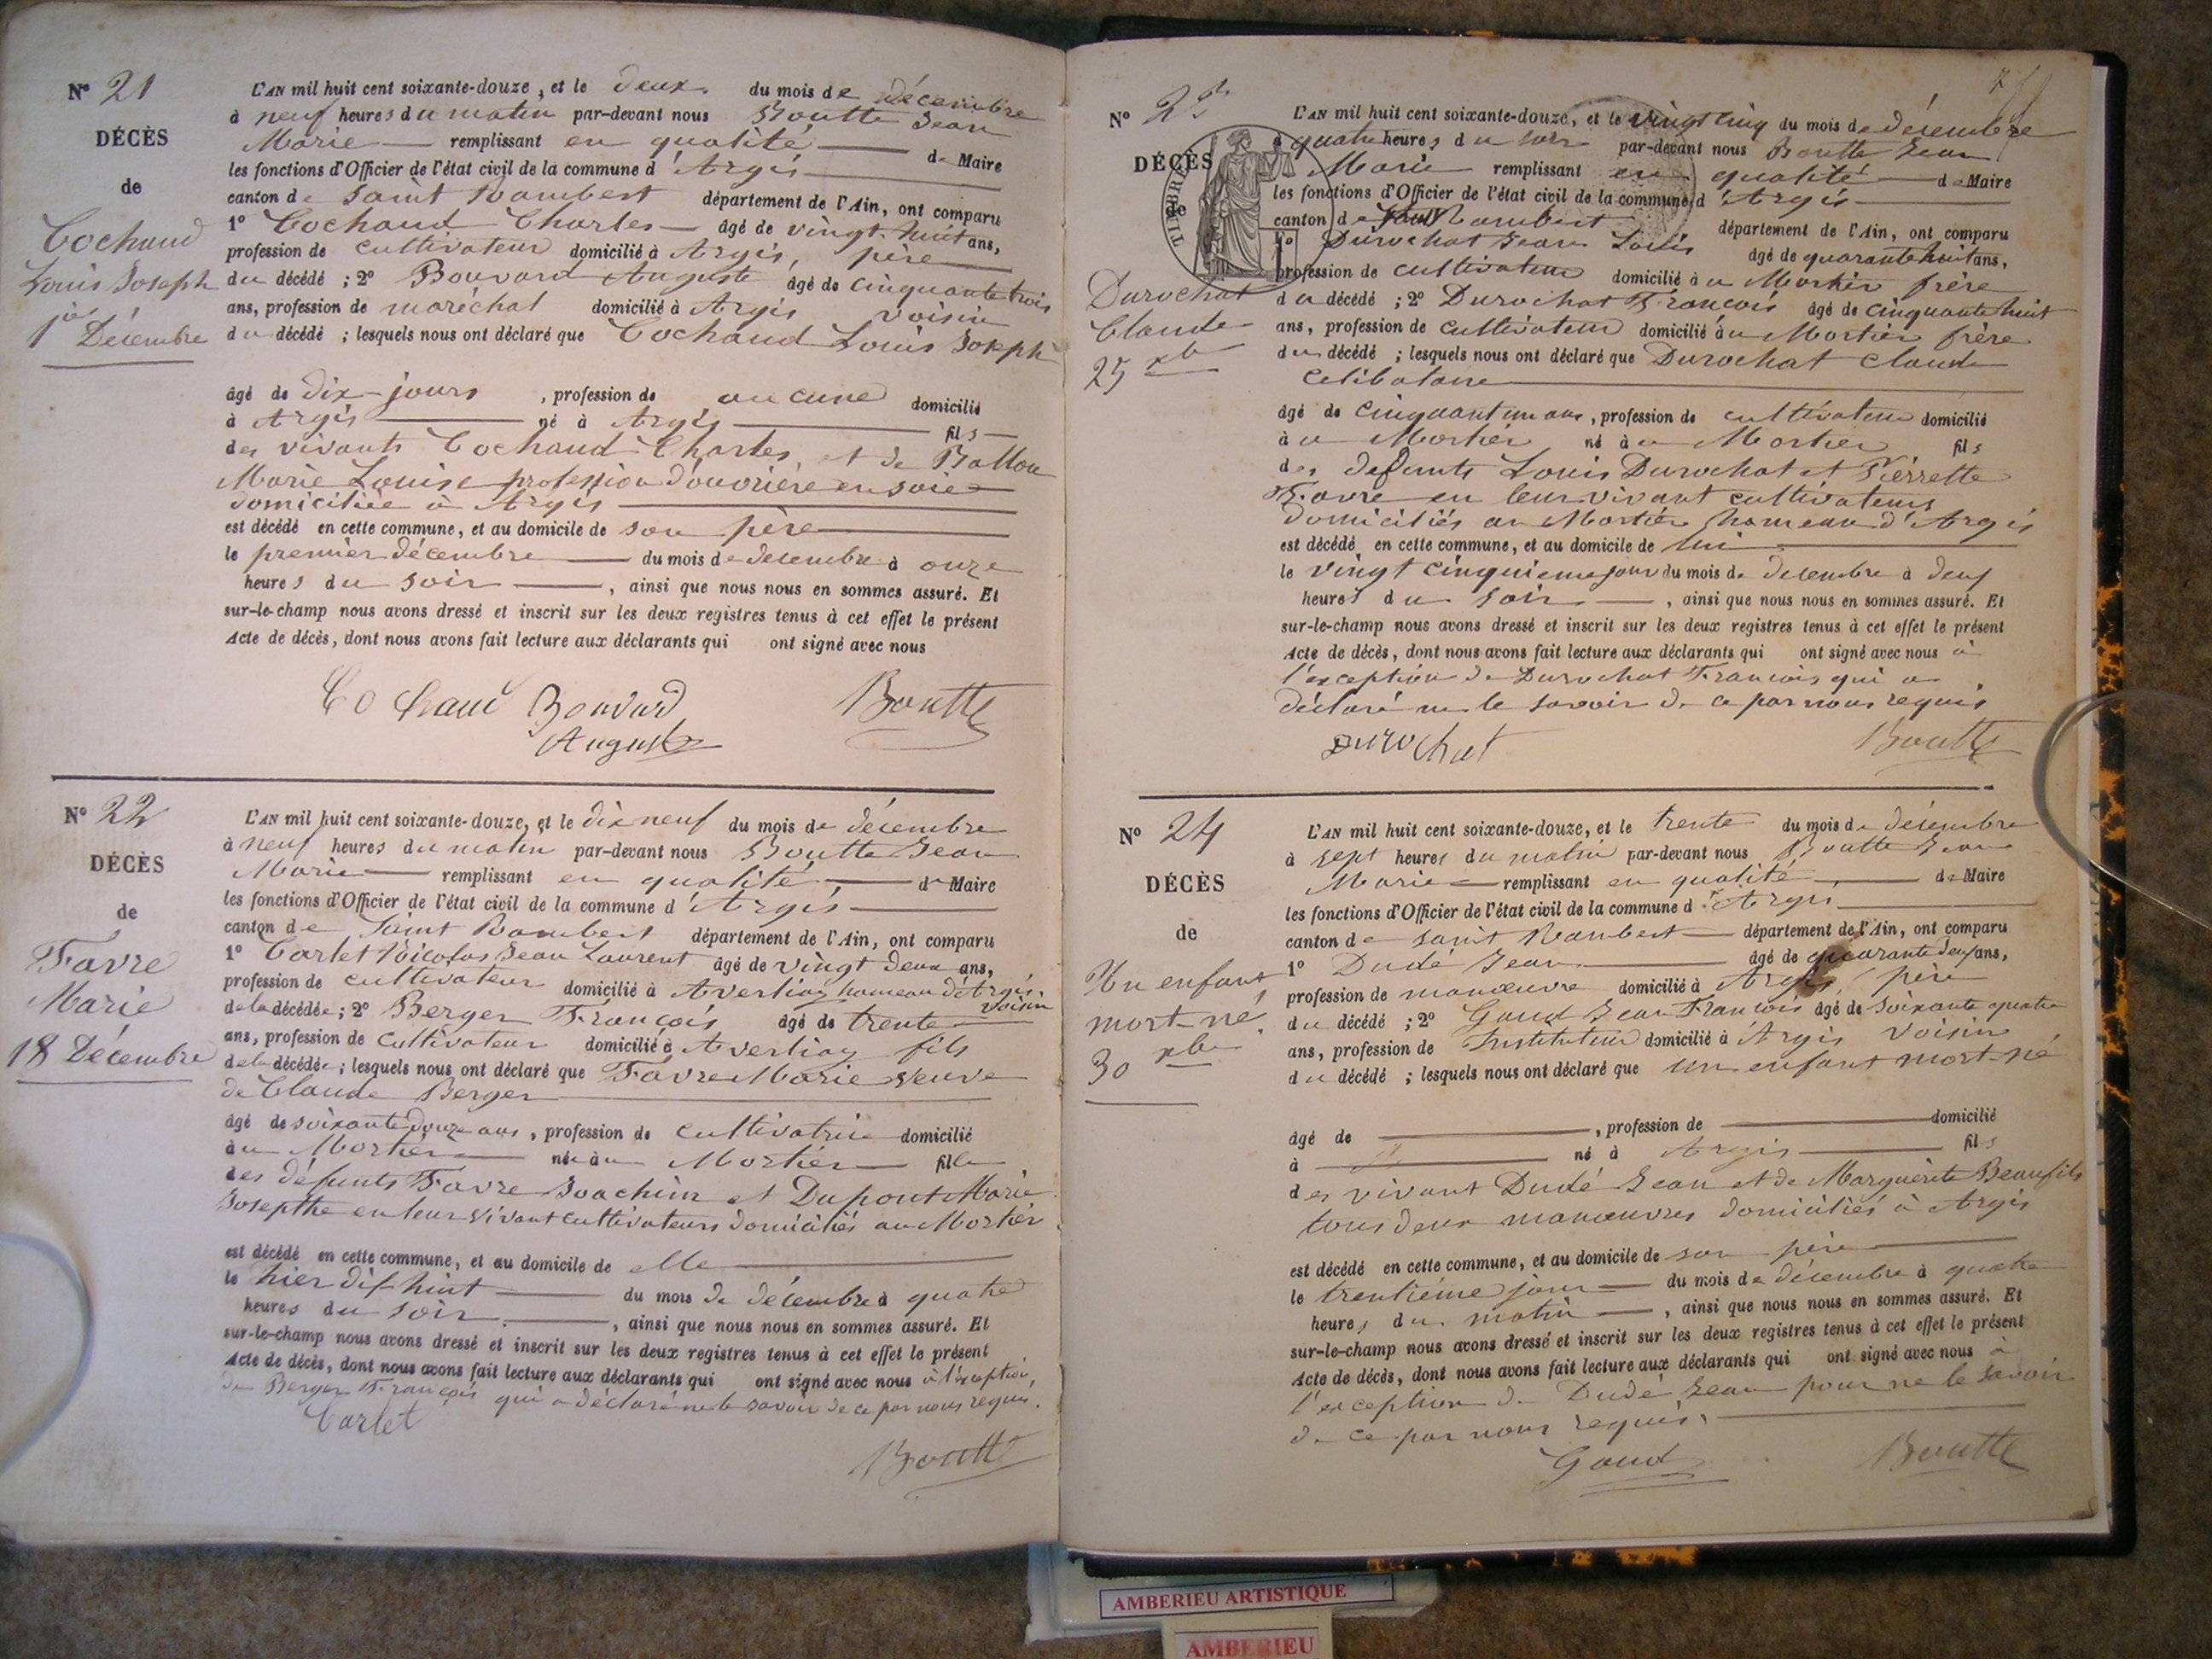 N° 21
DÉCÈS
de
Cochaud
Louis Joseph
1er Décembre
L'AN mil huit cent soixante-douze, et le deux du mois de décembre
à neuf heures du matin par-devant nous Boutte Jean
Marie remplissant en qualité de Maire
les fonctions d'Officier de l'état civil de la commune d'Argis
canton de Saint Rambert département de l'Ain, ont comparu
1° Cochaud Charles âgé de vingt huit ans,
profession de cultivateur domicilié à Argis, père
du décédé ; 2° Bouvard Auguste âgé de cinquante trois
ans, profession de maréchal domicilié à Argis voisin
du décédé ; lesquels nous ont déclaré que Cochaud Louis Joseph
âgé de dix jours, profession de aucune domicilié
à Argis né à Argis fils
des vivants Cochaud Charles, et de Ballou
Marie Louise profession d'ouvrière en soie
domiciliée à Argis
est décédé en cette commune, et au domicile de son père
le premier décembre du mois de decembre à onze
heures du soir, ainsi que nous nous en sommes assuré. Et
sur-le-champ nous avons dressé et inscrit sur les deux registres tenus à cet effet le présent
Acte de décès, dont nous avons fait lecture aux déclarants qui ont signé avec nous
Cochaud Bouvard Boutte
Auguste
N° 22
DÉCÈS
de
Favre
Marie
18 Décembre
L'AN mil huit cent soixante-douze, et le dix neuf du mois de décembre
à neuf heures du matin par-devant nous Boutte Jean
Marie remplissant en qualité de Maire
les fonctions d'Officier de l'état civil de la commune d'Argis
canton de Saint Rambert département de l'Ain, ont comparu
1° Carlet Nicolas Jean Laurent âgé de vingt deux ans,
profession de cultivateur domicilié à Averliaz hameau d'Argis, voisin
de la décédée ; 2° Berger François âgé de trente
ans, profession de cultivateur domicilié à Averliaz fils
de la décédée ; lesquels nous ont déclaré que Favre Marie veuve
de Claude Berger
âgé de soixante douze ans, profession de cultivatrice domicilié
au Mortier née au Mortier fille
des défunts Favre Joachim et Dupont Marie
Josepthe en leur vivant cultivateurs domiciliés au Mortier
est décédé en cette commune, et au domicile de elle
le hier dix huit du mois de décembre à quatre
heures du soir, ainsi que nous nous en sommes assuré. Et
sur-le-champ nous avons dressé et inscrit sur les deux registres tenus à cet effet le présent
Acte de décès, dont nous avons fait lecture aux déclarants qui ont signé avec nous à l'exception
de Berger François qui a déclaré ne le savoir de ce par nous requis.
Carlet
Boutte
N° 23
DÉCÈS
de
TIMBRE
Durochat
Claude
25 xbre
L'AN mil huit cent soixante-douze, et le vingt cinq du mois de décembre
à quatre heures du soir par-devant nous Boutte Jean
Marie remplissant en qualité de Maire
les fonctions d'Officier de l'état civil de la commune d'Argis
canton de Saint Rambert département de l'Ain, ont comparu
1° Durochat Jean Louis âgé de quarante huit ans,
profession de cultivateur domicilié au Mortier frère
du décédé ; 2° Durochat François âgé de cinquante huit
ans, profession de cultivateur domicilié au Mortier frère
du décédé ; lesquels nous ont déclaré que Durochat Claude
celibataire
âgé de cinquant un ans, profession de cultivateur domicilié
au Mortier né au Mortier fils
des defunts Louis Durochat et Pierrette
Favre en leur vivant cultivateurs
domiciliés au Mortier hameau d'Argis
est décédé en cette commune, et au domicile de lui
le vingt cinquieme jour du mois de decembre à deux
heures du soir, ainsi que nous nous en sommes assuré. Et
sur-le-champ nous avons dressé et inscrit sur les deux registres tenus à cet effet le présent
Acte de décès, dont nous avons fait lecture aux déclarants qui ont signé avec nous à
l'exception de Durochat François qui a
déclaré ne le savoir de ce par nous requis
Durochat Boutte
N° 24
DÉCÈS
de
Un enfant
mort-né
30 xbre
L'AN mil huit cent soixante-douze, et le trente du mois de décembre
à sept heures du matin par-devant nous Boutte Jean
Marie remplissant en qualité de Maire
les fonctions d'Officier de l'état civil de la commune d'Argis
canton de Saint Rambert département de l'Ain, ont comparu
1° Dudé Jean âgé de quarante deux ans,
profession de manœuvre domicilié à Argis, père
du décédé ; 2° Gaud Jean François âgé de soixante quatre
ans, profession de Instituteur domicilié à Argis voisin
du décédé ; lesquels nous ont déclaré que un enfant mort-né
âgé de , profession de domicilié
à né à Argis fils
des vivant Dudé Jean et de Marguerite Beaufils
tous deux manœuvres domiciliés à Argis
est décédé en cette commune, et au domicile de son père
le trentième jour du mois de décembre à quatre
heures du matin, ainsi que nous nous en sommes assuré. Et
sur-le-champ nous avons dressé et inscrit sur les deux registres tenus à cet effet le présent
Acte de décès, dont nous avons fait lecture aux déclarants qui ont signé avec nous à
l'exception de Dudé Jean pour ne le savoir
de ce par nous requis.
Gaud Boutte
AMBERIEU ARTISTIQUE
AMBERIEU